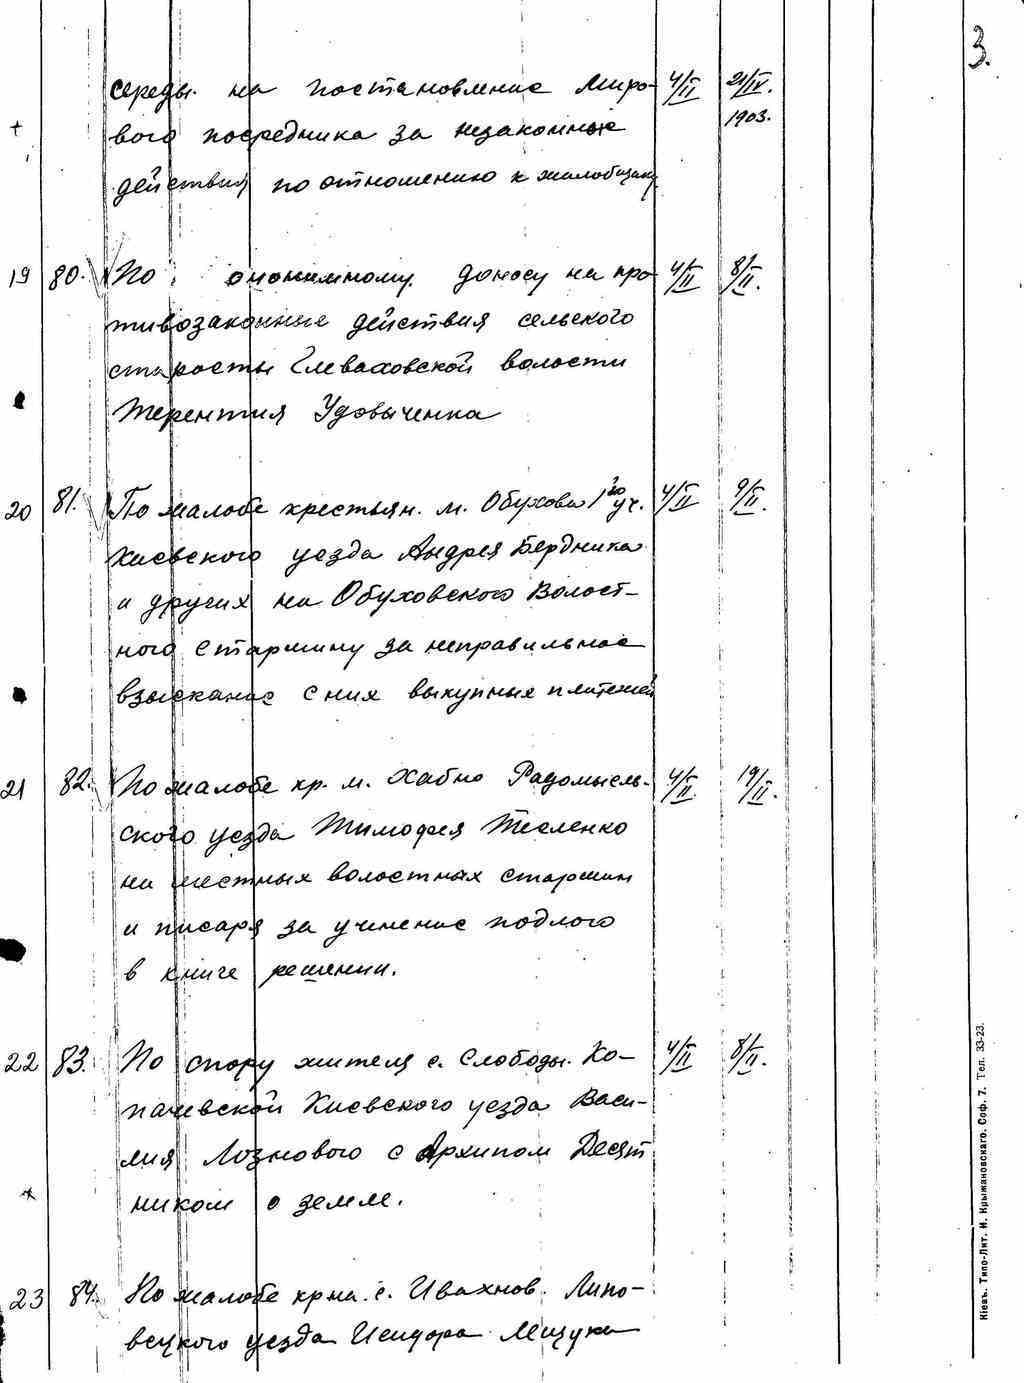 3.
середы на постановление Миро- 4/II 21/IV.
вого посредника за незаконные 1903.
действия по отношению к жалобщику
19 80. По анонимному доносу на про- 4/II 8/II.
тивозаконные действия сельского
старосты Глеваховской волости
Терентия Удовыченка
20 81. По жалобе крестьян. м. Обухова 1го уч. 4/II 9/II.
Киевского уезда Андрея Бердника
и других на Обуховского Волост-
ного старшину за неправильное
взыскание с них выкупных платежей
21 82. По жалобе кр. м. Хабно Радомысль- 4/II 19/II.
ского уезда Тимофея Тесленко
на местных волостных старшин
и писаря за учинение подлога
в книге решении.
22 83. По спору жителя с. Слободы Ко- 4/II 8/II.
пачевской Киевского уезда Васи-
лия Лознового с Архипом Десят
ником о земле.
23 84. По жалобе кр-на с. Ивахнов. Липо-
вецкого уезда Исидора Мищука
Кіевъ. Типо-Лит. И. Крыжановскаго. Соф. 7. Тел. 33-23.